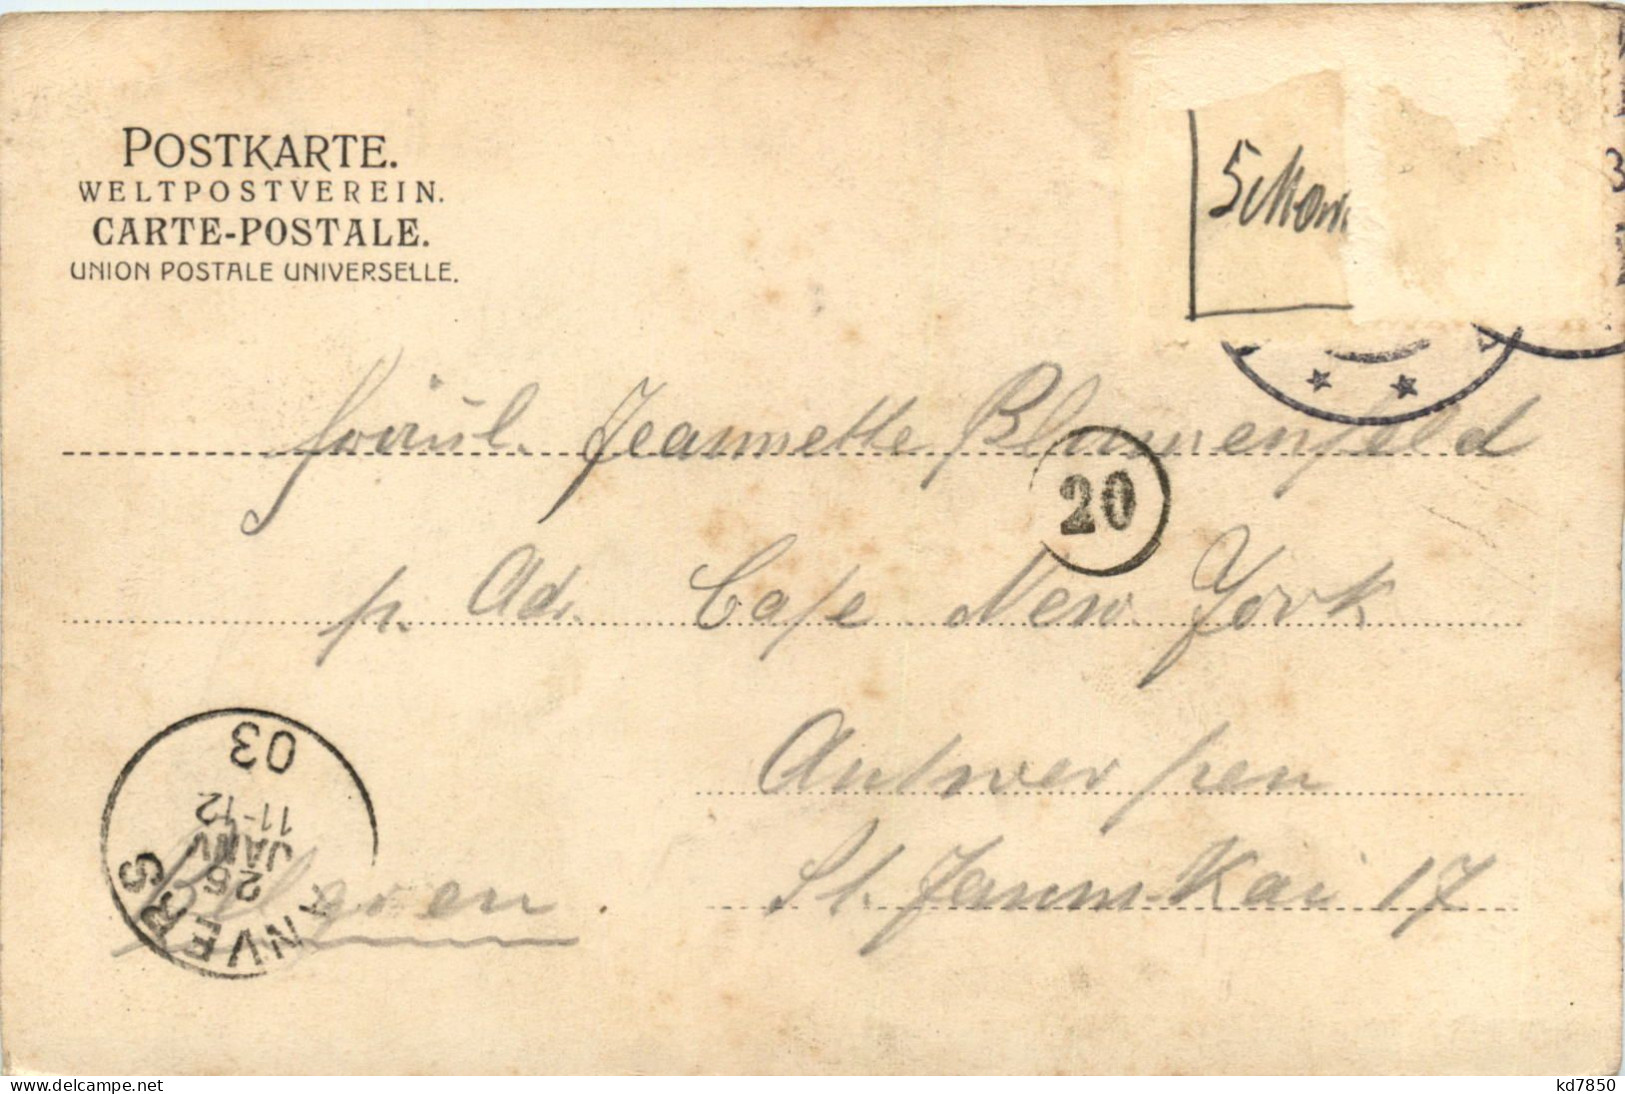 POSTKARTE.
WELTPOSTVEREIN.
CARTE-POSTALE.
UNION POSTALE UNIVERSELLE.
Fräul. Jeannette Blumenfeld
20
p. Ad. Cafe New York
Antwerpen
St. Janns Kai 17
Belgien.
ANVERS
25
JANV
11-12
03
delcampe.net
kd7850